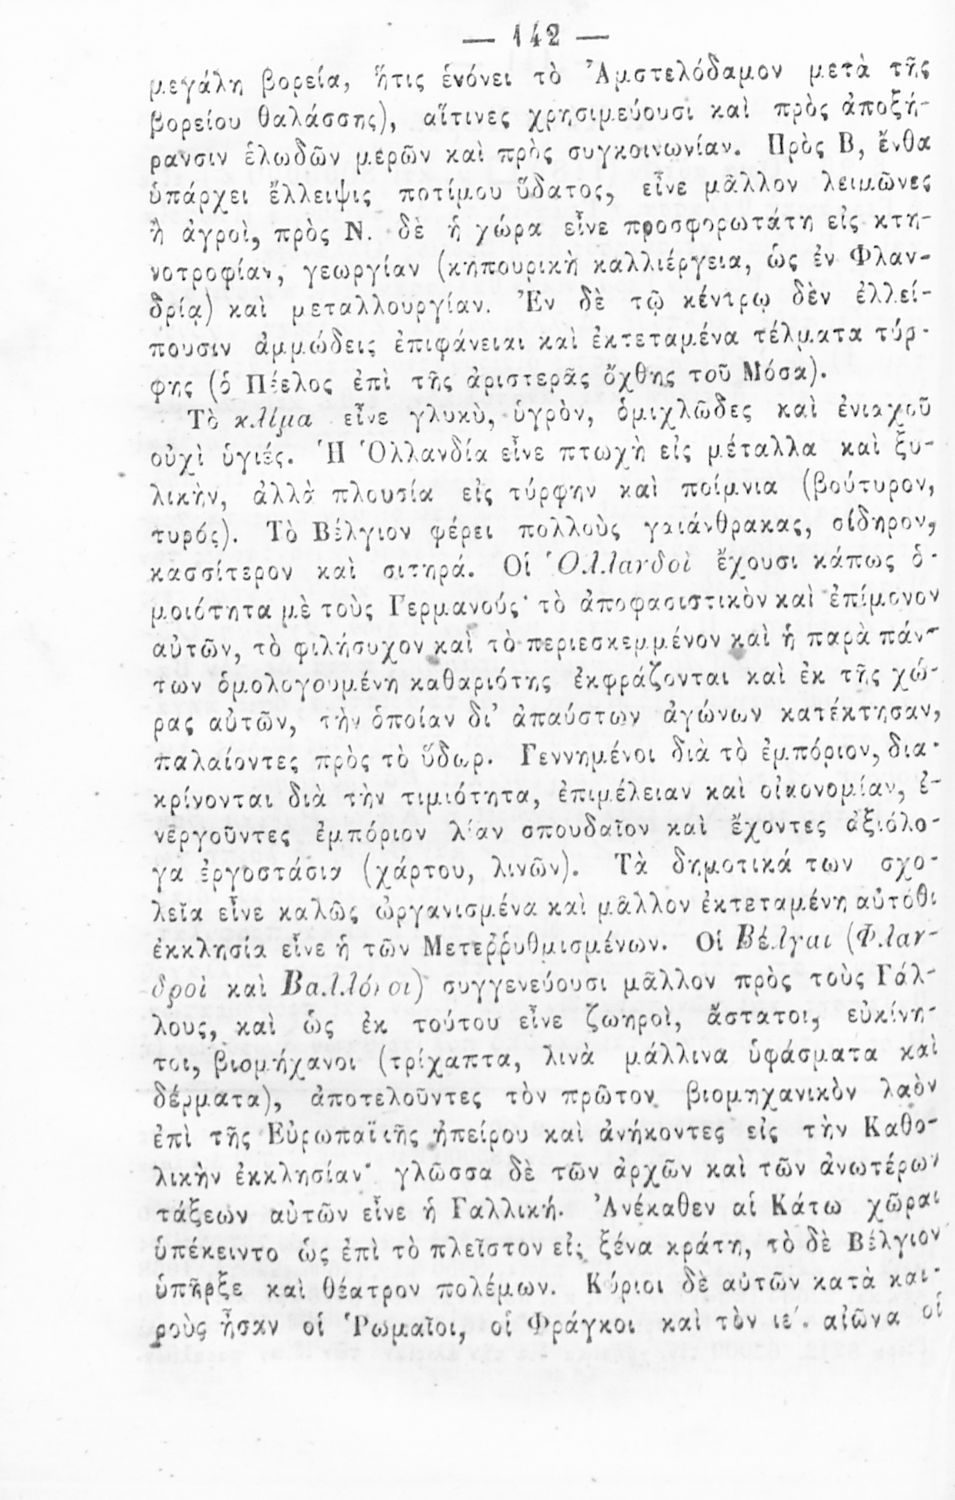 — 142 —
μεγάλη βορεία, ἥτις ἑνόνει τὸ Ἀμστελόδαμον μετὰ τῆς
βορείου θαλάσσης), αἵτινες χρησιμεύουσι καὶ πρὸς ἀποξή-
ρανσιν ἑλωδῶν μερῶν καὶ πρὸς συγκοινωνίαν. Πρὸς Β, ἔνθα
ὑπάρχει ἔλλειψις ποτίμου ὕδατος, εἶνε μᾶλλον λειμῶνες
ἢ ἀγροὶ, πρὸς Ν. δὲ ἡ χώρα εἶνε προσφορωτάτη εἰς κτη-
νοτροφίαν, γεωργίαν (κηπουρικὴ καλλιέργεια, ὡς ἐν Φλαν-
δρίᾳ) καὶ μεταλλουργίαν. Ἐν δὲ τῷ κέντρῳ δὲν ἐλλεί-
πουσιν ἀμμώδεις ἐπιφάνειαι καὶ ἐκτεταμένα τέλματα τύρ-
φης (ὁ Πέελος ἐπὶ τῆς ἀριστερᾶς ὄχθης τοῦ Μόσα).
Τὸ κλίμα εἶνε γλυκὺ, ὑγρὸν, ὁμιχλῶδες καὶ ἐνιαχοῦ
οὐχὶ ὑγιές. Ἡ Ὁλλανδία εἶνε πτωχὴ εἰς μέταλλα καὶ ξυ-
λικὴν, ἀλλὰ πλουσία εἰς τύρφην καὶ ποίμνια (βούτυρον,
τυρός). Τὸ Βέλγιον φέρει πολλοὺς γαιάνθρακας, σίδηρον,
κασσίτερον καὶ σιτηρά. Οἱ Ὁλλανδοὶ ἔχουσι κάπως ὁ-
μοιότητα μὲ τοὺς Γερμανούς· τὸ ἀποφασιστικὸν καὶ ἐπίμονον
αὐτῶν, τὸ φιλήσυχον καὶ τὸ περιεσκεμμένον καὶ ἡ παρὰ πάν-
των ὁμολογουμένη καθαριότης ἐκφράζονται καὶ ἐκ τῆς χώ-
ρας αὐτῶν, τὴν ὁποίαν δι’ ἀπαύστων ἀγώνων κατέκτησαν,
παλαίοντες πρὸς τὸ ὕδωρ. Γεννημένοι διὰ τὸ ἐμπόριον, δια-
κρίνονται διὰ τὴν τιμιότητα, ἐπιμέλειαν καὶ οἰκονομίαν, ἐ-
νεργοῦντες ἐμπόριον λίαν σπουδαῖον καὶ ἔχοντες ἀξιόλο-
γα ἐργοστάσια (χάρτου, λινῶν). Τὰ δημοτικά των σχο-
λεῖα εἶνε καλῶς ὠργανισμένα καὶ μᾶλλον ἐκτεταμένη αὐτόθι
ἐκκλησία εἶνε ἡ τῶν Μετεῤῥυθμισμένων. Οἱ Βέλγαι (Φλαν-
δροὶ καὶ Βαλλόνοι) συγγενεύουσι μᾶλλον πρὸς τοὺς Γάλ-
λους, καὶ ὡς ἐκ τούτου εἶνε ζωηροὶ, ἄστατοι, εὐκίνη-
τοι, βιομήχανοι (τρίχαπτα, λινὰ μάλλινα ὑφάσματα καὶ
δέρματα), ἀποτελοῦντες τὸν πρῶτον βιομηχανικὸν λαὸν
ἐπὶ τῆς Εὐρωπαϊκῆς ἠπείρου καὶ ἀνήκοντες εἰς τὴν Καθο-
λικὴν ἐκκλησίαν· γλῶσσα δὲ τῶν ἀρχῶν καὶ τῶν ἀνωτέρων
τάξεων αὐτῶν εἶνε ἡ Γαλλική. Ἀνέκαθεν αἱ Κάτω χῶραι
ὑπέκειντο ὡς ἐπὶ τὸ πλεῖστον εἰς ξένα κράτη, τὸ δὲ Βέλγιον
ὑπῆρξε καὶ θέατρον πολέμων. Κύριοι δὲ αὐτῶν κατὰ και-
ροὺς ἦσαν οἱ Ῥωμαῖοι, οἱ Φράγκοι καὶ τὸν ιε΄. αἰῶνα οἱ